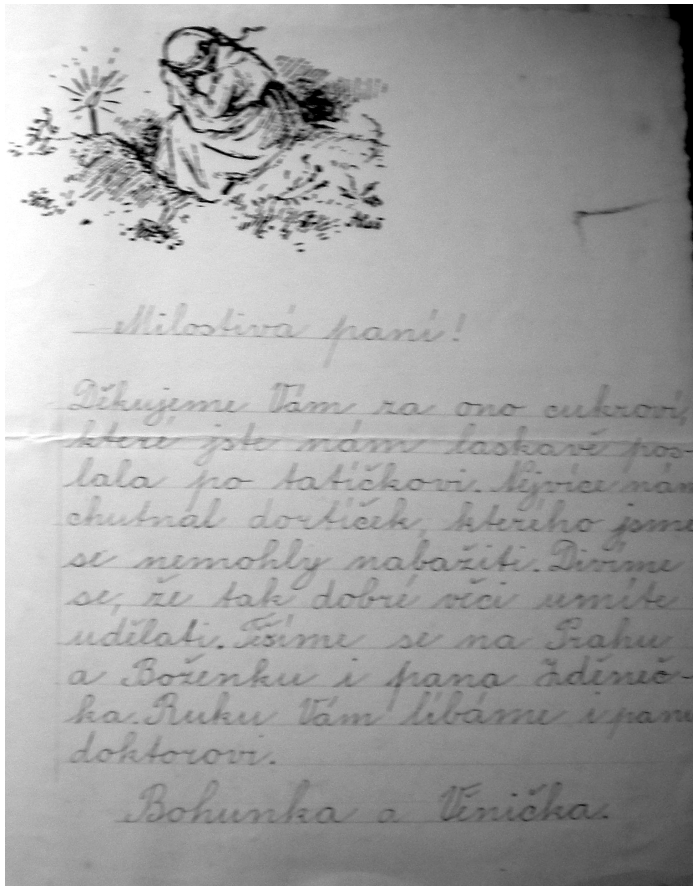 Milostivá paní!
Děkujeme Vám za ono cukroví,
které jste nám laskavě pos-
lala po tatíčkovi. Nejvíce nám
chutnal dortíček, kterého jsme
se nemohly nabažiti. Divíme
se, že tak dobré věci umíte
udělati. Těšíme se na Prahu
a Boženku i pana Zděneč-
ka. Ruku Vám líbáme i panu
doktorovi.
Bohunka a Věnička.